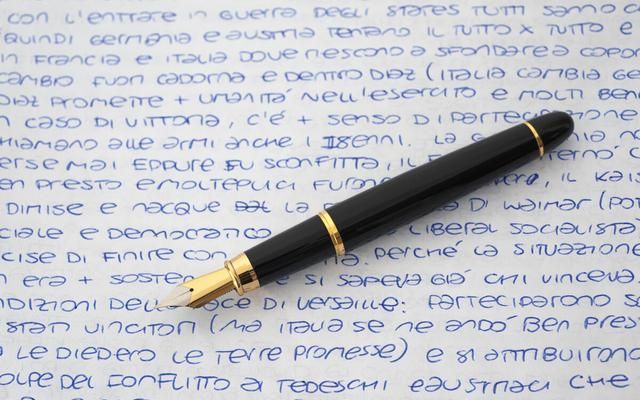 CON L'ENTRATE IN GUERRA DEGLI STATES TUTTI SANNO C
QUINDI GERMANIA E AUSTRIA TENTANO IL TUTTO X TUTTO E
IN FRANCIA E ITALIA DOVE RIESCONO A SFONDARE A CAPO
CAMBIO FUORI CADORNA E DENTRO DIAZ (ITALIA CAMBIA GE
DIAZ PROMETTE + UMANITÀ NELL'ESERCITO E MOLTI BEN
N CASO DI VITTORIA, C'È + SENSO DI PARTECIPAZIONE
HIAMANO ALLE ARMI ANCHE I 18ENNI. LA G MANIA N
ERSE MAI EPPURE FU SCONFITTA, IL F TERNO C
EN PRESTO E MOLTEPLICI FURONO , IL KAIS
DIMISE E NACQUE LA DI WAIMAR (POT
CIALE E DEMOCRATICO LIBERAL SOCIALISTA
CISE DI FINIRE CON PERCHÉ LA SITUAZIONE
N ERA + SOSTEN E SI SAPEVA GIÀ CHI VINCEVA
NDIZIONI DELLA PACE DI VERSAILLE: PARTECIPARONO S
STATI VINCITORI (MA ITALIA SE NE ANDÒ BEN PRES
LE DIEDERO LE TERRE PROMESSE) E SI ATTRIBUIRONO
OLPE DEL CONFLITTO AI TEDESCHI E AUSTRIACI CHE